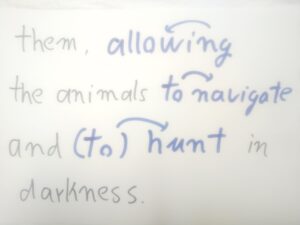 them, allowing
the animals to navigate
and (to) hunt in
darkness.